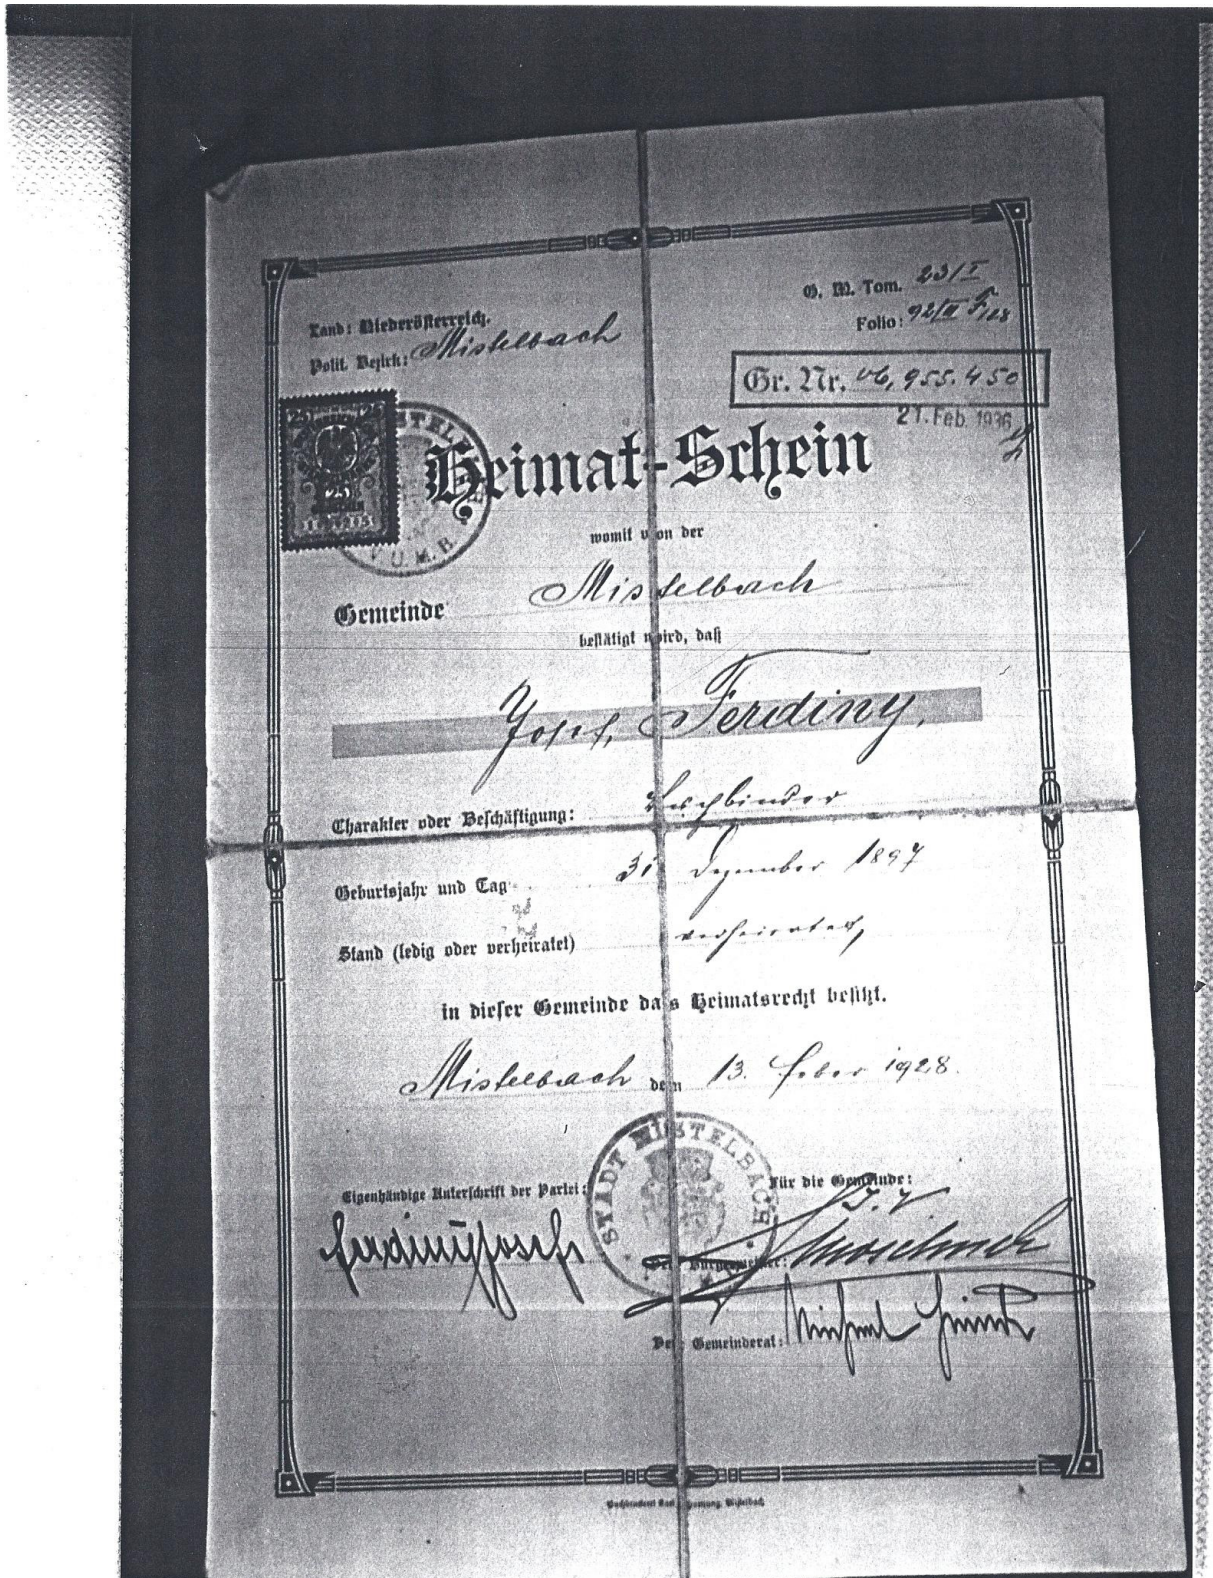 Land: Niederösterreich.
Polit. Bezirk: Mistelbach
G. M. Tom. 23/I
Folio: 92/II F/28
Gr. Nr. 955.450
21. Feb. 1936
25 25
25
MISTELB
V. U. M. B.
Heimat-Schein
womit von der
Gemeinde Mistelbach
bestätigt wird, daß
Josef Ferdiny,
Charakter oder Beschäftigung: Buchbinder
Geburtsjahr und Tag 31. Dezember 1897
Stand (ledig oder verheiratet) verheiratet,
in dieser Gemeinde das Heimatsrecht besitzt.
Mistelbach den 13. Feber 1928.
STADT MISTELBACH
Eigenhändige Unterschrift der Partei:
Ferdiny Josef
Für die Gemeinde:
I. V.
Der Bürgermeister:
Der Gemeinderat: Michael
Buchdruckerei Mistelbach